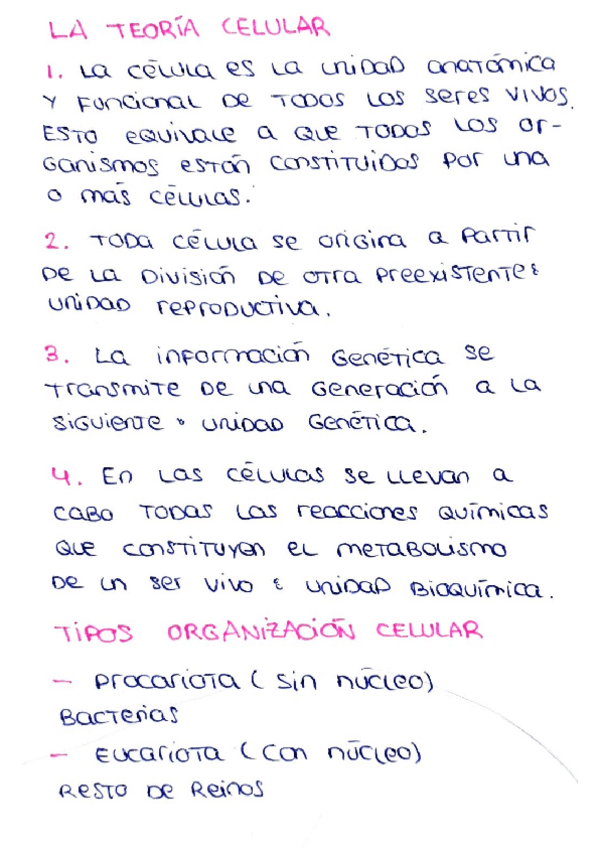 LA TEORÍA CELULAR
1. La célula es la unidad anatómica
y funcional de todos los seres vivos.
Esto equivale a que todos los or-
ganismos están constituidos por una
o más células.
2. Toda célula se origina a partir
de la división de otra preexistente:
unidad reproductiva.
3. La información genética se
transmite de una generación a la
siguiente: unidad genética.
4. En las células se llevan a
cabo todas las reacciones químicas
que constituyen el metabolismo
de un ser vivo: unidad bioquímica.
TIPOS ORGANIZACIÓN CELULAR
- Procariota (sin núcleo)
Bacterias
- Eucariota (con núcleo)
Resto de Reinos